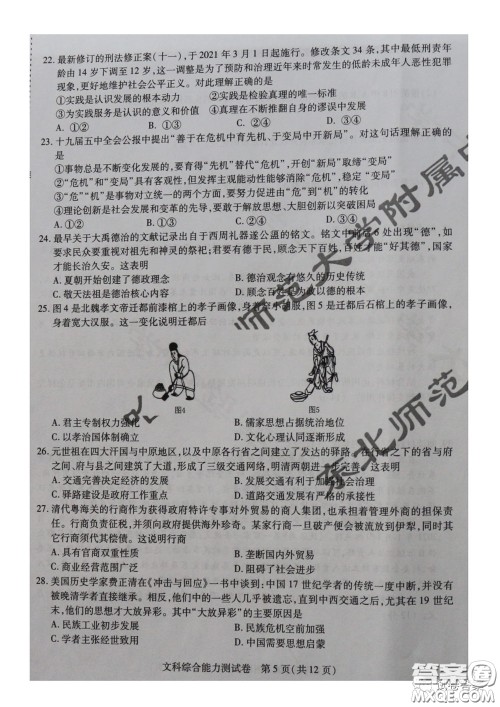 22. 最新修订的刑法修正案(十一),于 2021 年 3 月 1 日起施行。修改条文 34 条,其中最低刑责年
龄由 14 岁下调至 12 岁,这一调整是为了预防和治理近年来时常发生的低龄未成年人恶性犯罪
现象,更好地维护社会公平正义。对此理解正确的是
①实践是认识发展的根本动力 ②实践是检验认识的标准
③为实践服务是认识的意义和价值 ④真理在不断推翻自身中发展
A. ①② B. ①③ C. ②④ D. ③④
23. 十九届五中全会公报中提出“善于在危机中育先机、于变局中开新局”。对这句话理解正确的
是
①事物总是不断变化发展的,要育得“先机”替代“危机”,开创“新局”取缔“变局”
②“危机”和“变局”具有客观性,但发挥主观能动性能够消除“危机”,稳定“变局”
③“危”与“机”是事物对立统一的两个方面,要努力创造条件,促进由“危”到“机”的转化
④理论创新是社会发展与变革的先导,要敢于解放思想、大胆创新以突破困局
A. ①② B. ①③ C. ②④ D. ③④
24. 最早关于大禹德治的文献记录出自于西周礼器遂公盨的铭文。铭文中前后 6 处出现“德”,如
要求民众重视对祖先和神灵的祭祀;君王要有德于民,顾念天下百姓;百官要注重德行,国家
才能长治久安。这表明
A. 夏朝开始创建了德政理念 B. 德治观念有悠久的历史传统
C. 敬天法祖是德治核心内容 D. 顾念苍生是德治的根本目标
25. 图 4 是北魏孝文帝迁都前漆棺上的孝子画像,身着窄小胡服,图 5 是迁都后石棺上的孝子画像,
身着宽大汉服。这一变化说明迁都后
图4 图5
A. 君主专制权力强化 B. 儒家思想占据统治地位
C. 以孝治国体制确立 D. 文化心理认同逐渐形成
26. 元世祖在四大汗国与中原地区,以及中原与各行省之间建立了发达的驿路。在行省之下的省与府
之间、府与县之间和建筑了大道,形成了三级交通网络,明清两朝进一步完善。这表明
A. 交通完善决定经济的发展 B. 大一统有利于交通发展
C. 驿路建设是政府工作重点 D. 大道与驿路形成全国交通网
27. 清代粤海关的行商作为获得政府特许专事对外贸易的商人集团,也承担着管理外商的外交责
任。行商负责征税,并须向政府提供海外珍奇。某家行商一旦破产便会被流放到伊犁,同时其
它行商须代其偿债。这说明行商
A. 具有官商双重性质 B. 垄断国内外贸易
C. 商业经营范围广泛 D. 行业内相互牵制
28. 美国历史学家费正清在《冲击与回应》一书中谈到:中国 17 世纪学者的传统一度中断,并没有
被晚清学者直接继承。相反,他们中的一些人几乎被遗忘,直到在西方的刺激下,尤其在 19 世纪
末,他们的思想才大放异彩。其中“大放异彩”的主要原因是
A. 民主思想的影响 B. 民族危机空前加强
C. 学者主张经世致用 D. 民族工业初步发展
文科综合能力测试卷 第 5 页(共 12 页)
师范大学附属中
东北师范
答案圈